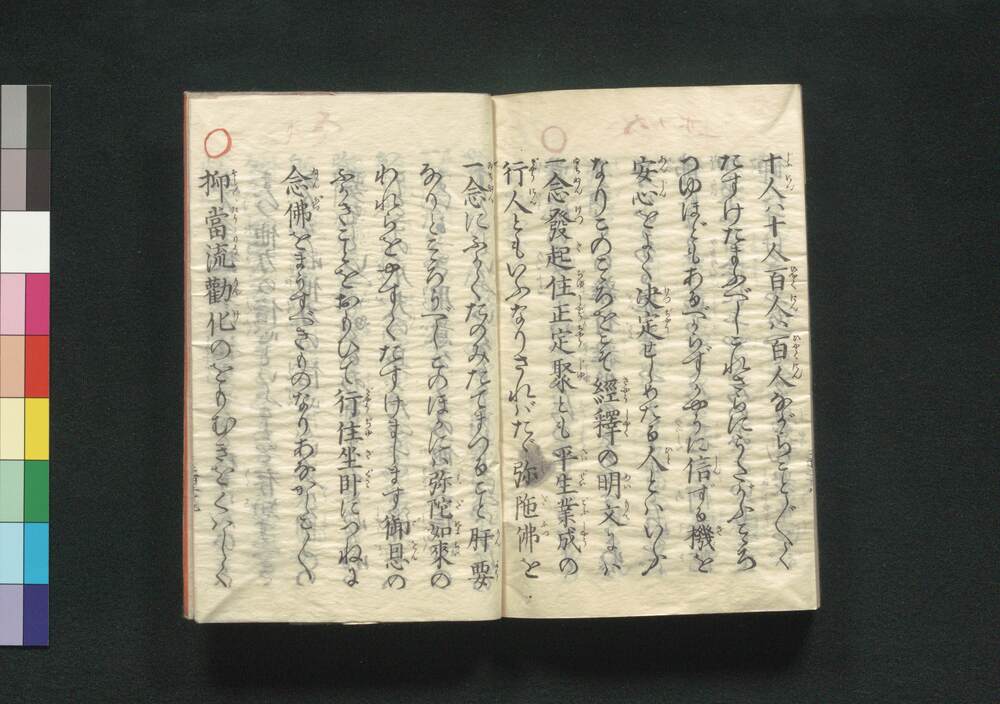 十人は十人百人は百人ながらことごとく
たすけたまふべしこれさらにうたがふこころ
つゆほどもあるべからずかやうに信ずる機を
安心をよく決定せしめたる人とはいふ
なりこのこころをこそ經釋の明文には
一念發起住正定聚とも平生業成の
行人ともいふなりさればたゞ弥陁佛を
一念にふかくたのみたてまつること肝要
なりとこころうべしこのほかには弥陀如來の
われらをやすくたすけまします御恩の
ふかきことをおもひて行住坐卧につねに
念佛をまうすべきものなりあなかしこ〱
抑當流勸化のをもむきをくはしく